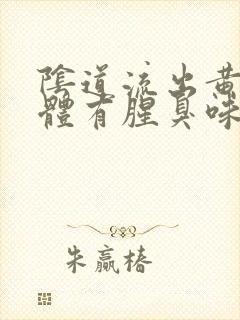 陰道流出黃
體有腥臭味
朱贏椿